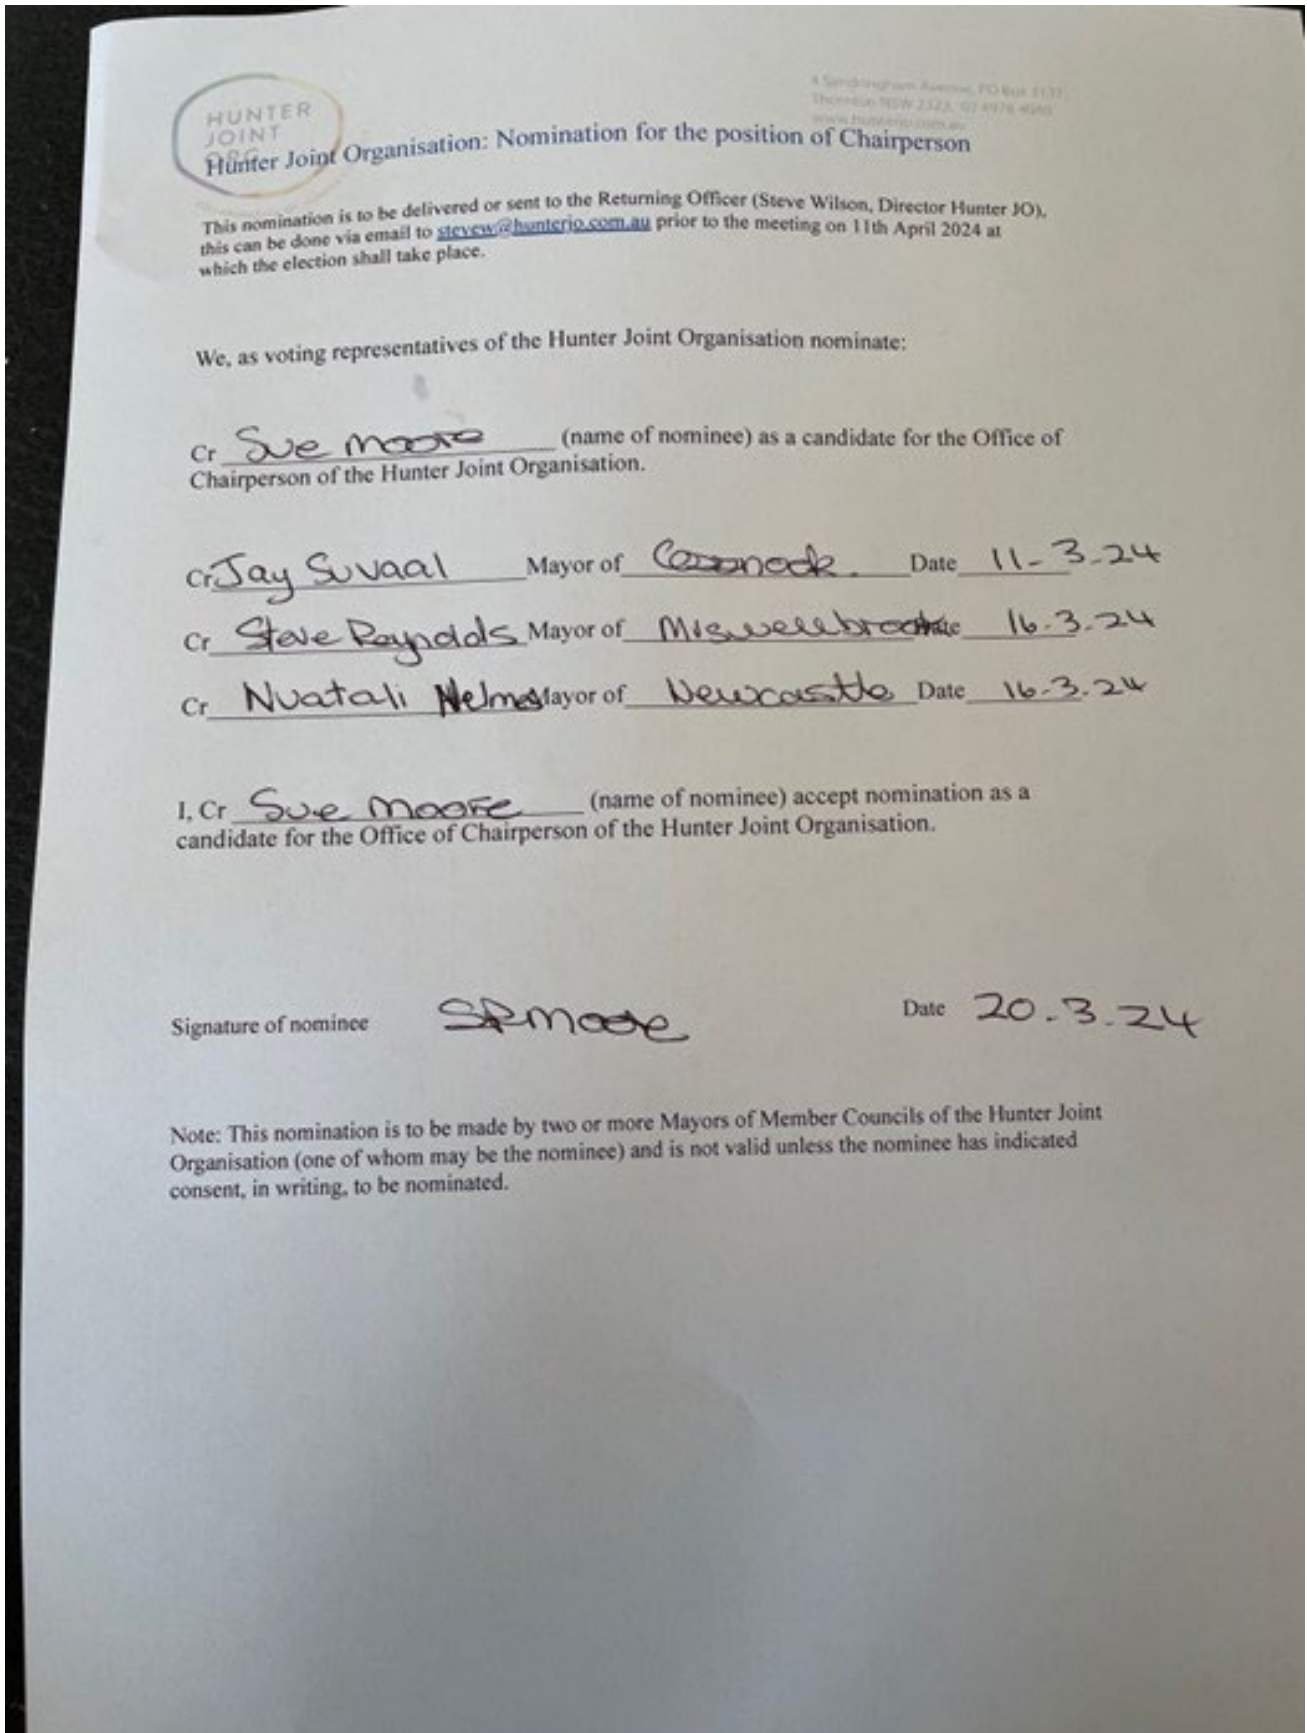 HUNTER
JOINT
ORG
4 Sandringham Avenue, PO Box 3137
Thornton NSW 2322, 02 4978 4040
www.hunterjo.com.au
Hunter Joint Organisation: Nomination for the position of Chairperson
This nomination is to be delivered or sent to the Returning Officer (Steve Wilson, Director Hunter JO),
this can be done via email to stevew@hunterjo.com.au prior to the meeting on 11th April 2024 at
which the election shall take place.
We, as voting representatives of the Hunter Joint Organisation nominate:
Cr Sue Moore (name of nominee) as a candidate for the Office of
Chairperson of the Hunter Joint Organisation.
Cr Jay Suvaal Mayor of Cessnock. Date 11-3-24
Cr Steve Reynolds Mayor of Date 16.3.24
Cr Nuatali Nelmes Mayor of Newcastle Date 16-3-24
I, Cr Sue Moore (name of nominee) accept nomination as a
candidate for the Office of Chairperson of the Hunter Joint Organisation.
Signature of nominee SRMoore Date 20.3.24
Note: This nomination is to be made by two or more Mayors of Member Councils of the Hunter Joint
Organisation (one of whom may be the nominee) and is not valid unless the nominee has indicated
consent, in writing, to be nominated.